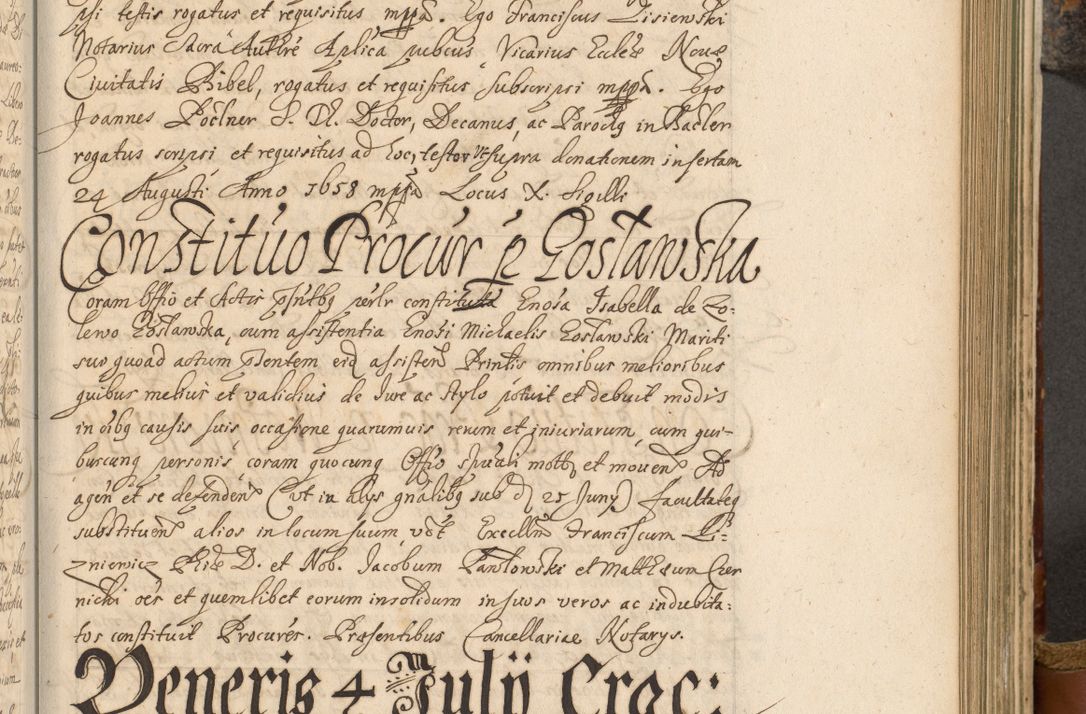 psi testis rogatus et requisitus mppa. Ego Franciscus Lisiewski
Notarius Sacra Authre Aplica pubcus, Vicarius Eccles Nouę
Ciuitatis Bibel, rogatus et requisitus subscripsi mppa. Ego
Joannes Pöclner S. Doctor, Decanus, ac Paroch9 in
rogatus scripsi et requisitus ad hoc, testor ut supra donationem insertam
24 Augusti Anno 1658 mppa Locus X. Sigilli
Constitúo Procúr p Gosławska
Coram Offio et Actis psntbq perlr constituta Gnosa Isabella de Zo:
lewo Gosławska, cum assistentia Gnosi Michaelis Gosławski Mariti
sui quoad actum pntem eid assisten Printis omnibus melioribus
quibus melius et validius de Iure ac stylo potuit et debuit modis
in oibq causis suis occasione quarumuis rerum et iniuriarum, cum qui-
buscunq personis coram quocunq Offio spuali mott, et mouen Ad
agen et se defenden (ut in alys gnalibq sub d 25 Juny) facultateq
substituen alios in locum suum, vdt Excelln Franciscum Li:
zniewicz Phie D. et Nob. Jacobum Pawłowski et Mattheum Czer
nicki oes et quemlibet eorum insolidum in suos veros ac indubita:
tos constituit Procures. Presentibus Cancellariae Notarys.
Veneris 4 Julij Crac: